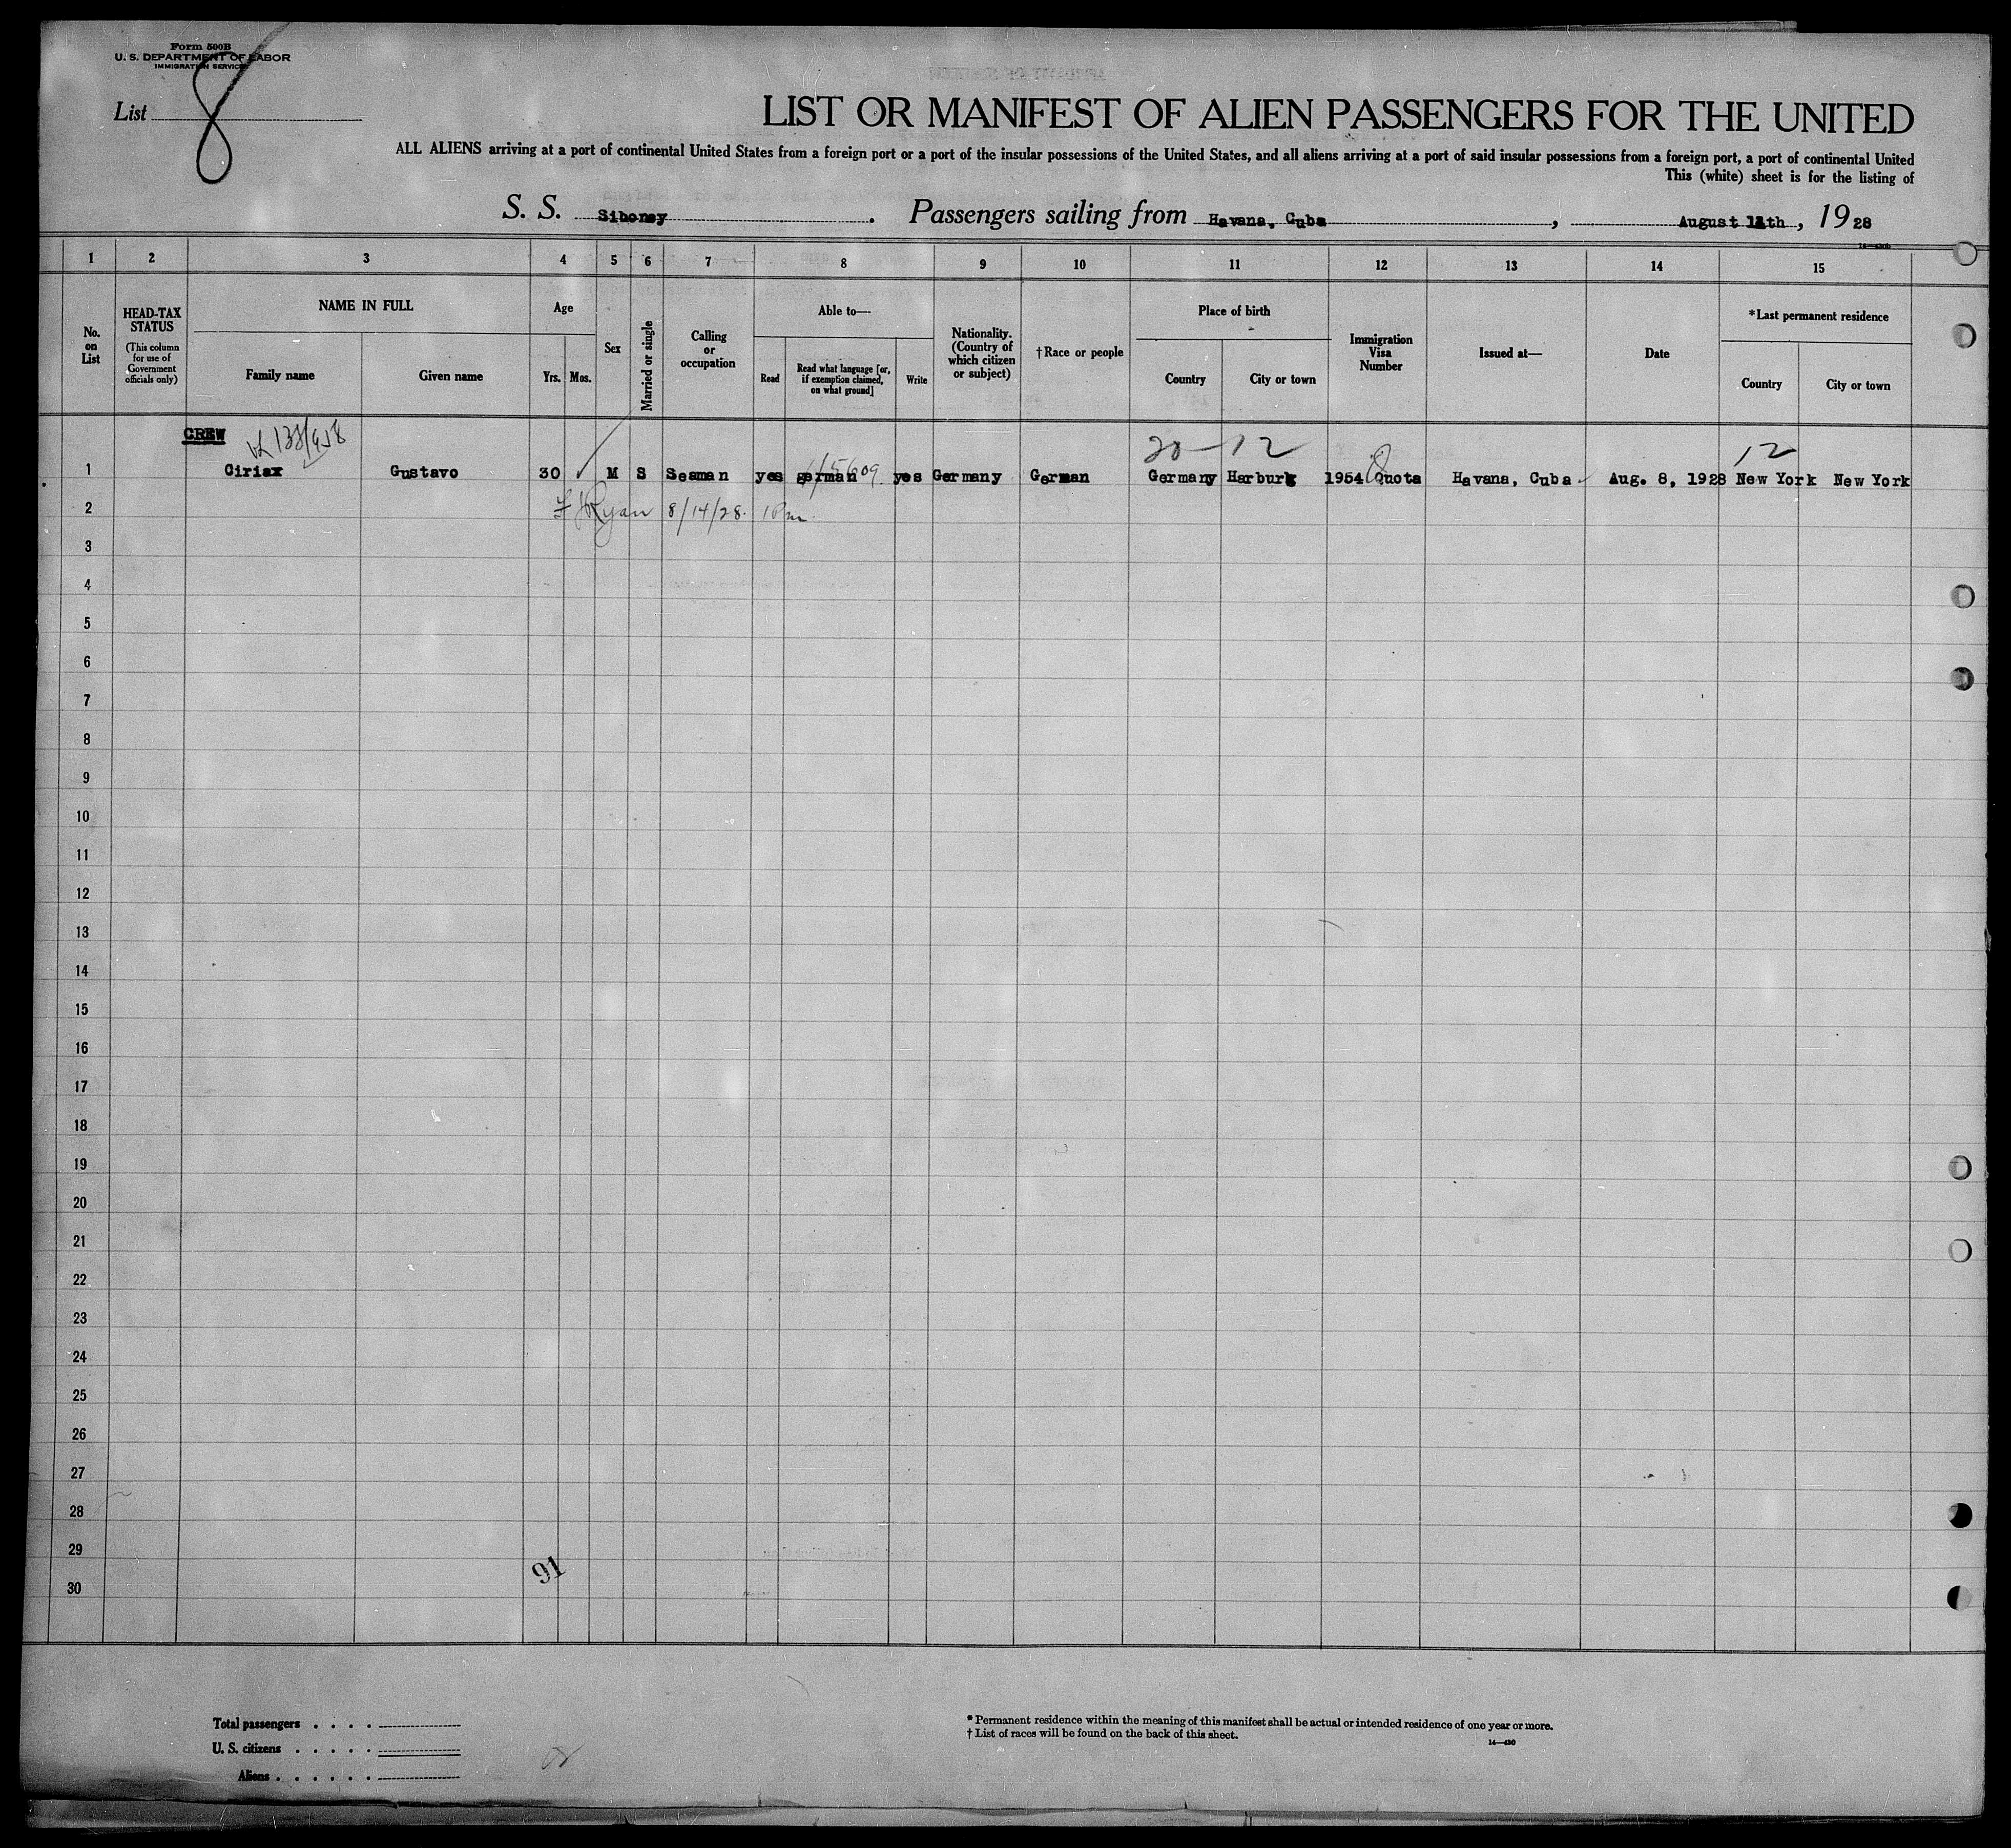 Form 500B
U. S. DEPARTMENT OF LABOR
IMMIGRATION SERVICE
List 8
LIST OR MANIFEST OF ALIEN PASSENGERS FOR THE UNITED
ALL ALIENS arriving at a port of continental United States from a foreign port or a port of the insular possessions of the United States, and all aliens arriving at a port of said insular possessions from a foreign port, a port of continental United
This (white) sheet is for the listing of
S. S. Siboney. Passengers sailing from Havana, Cuba, August th, 1928
1 2 3 4 5 6 7 8 9 10 11 12 13 14 15
No. on List
HEAD-TAX STATUS
(This column for use of Government officials only)
NAME IN FULL
Family name Given name
Age
Yrs. Mos.
Sex
Married or single
Calling or occupation
Able to—
Read
Read what language [or, if exemption claimed, on what ground]
Write
Nationality. (Country of which citizen or subject)
†Race or people
Place of birth
Country City or town
Immigration Visa Number
Issued at—
Date
*Last permanent residence
Country City or town
CREW
20-12 12
1 Ciriax Gustavo 30 M S Seaman yes german yes Germany German Germany Harburg 1954 Quota Havana, Cuba Aug. 8, 1928 New York New York
2 Ryan 8/14/28. 1 Pm
3
4
5
6
7
8
9
10
11
12
13
14
15
16
17
18
19
20
21
22
23
24
25
26
27
28
29
91
30
Total passengers . . . .
U. S. citizens . . . . .
Aliens . . . . . .
* Permanent residence within the meaning of this manifest shall be actual or intended residence of one year or more.
† List of races will be found on the back of this sheet.
14—430